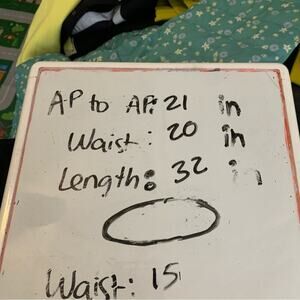 AP to AP: 21 in
Waist: 20 in
Length: 32 in
Waist: 15